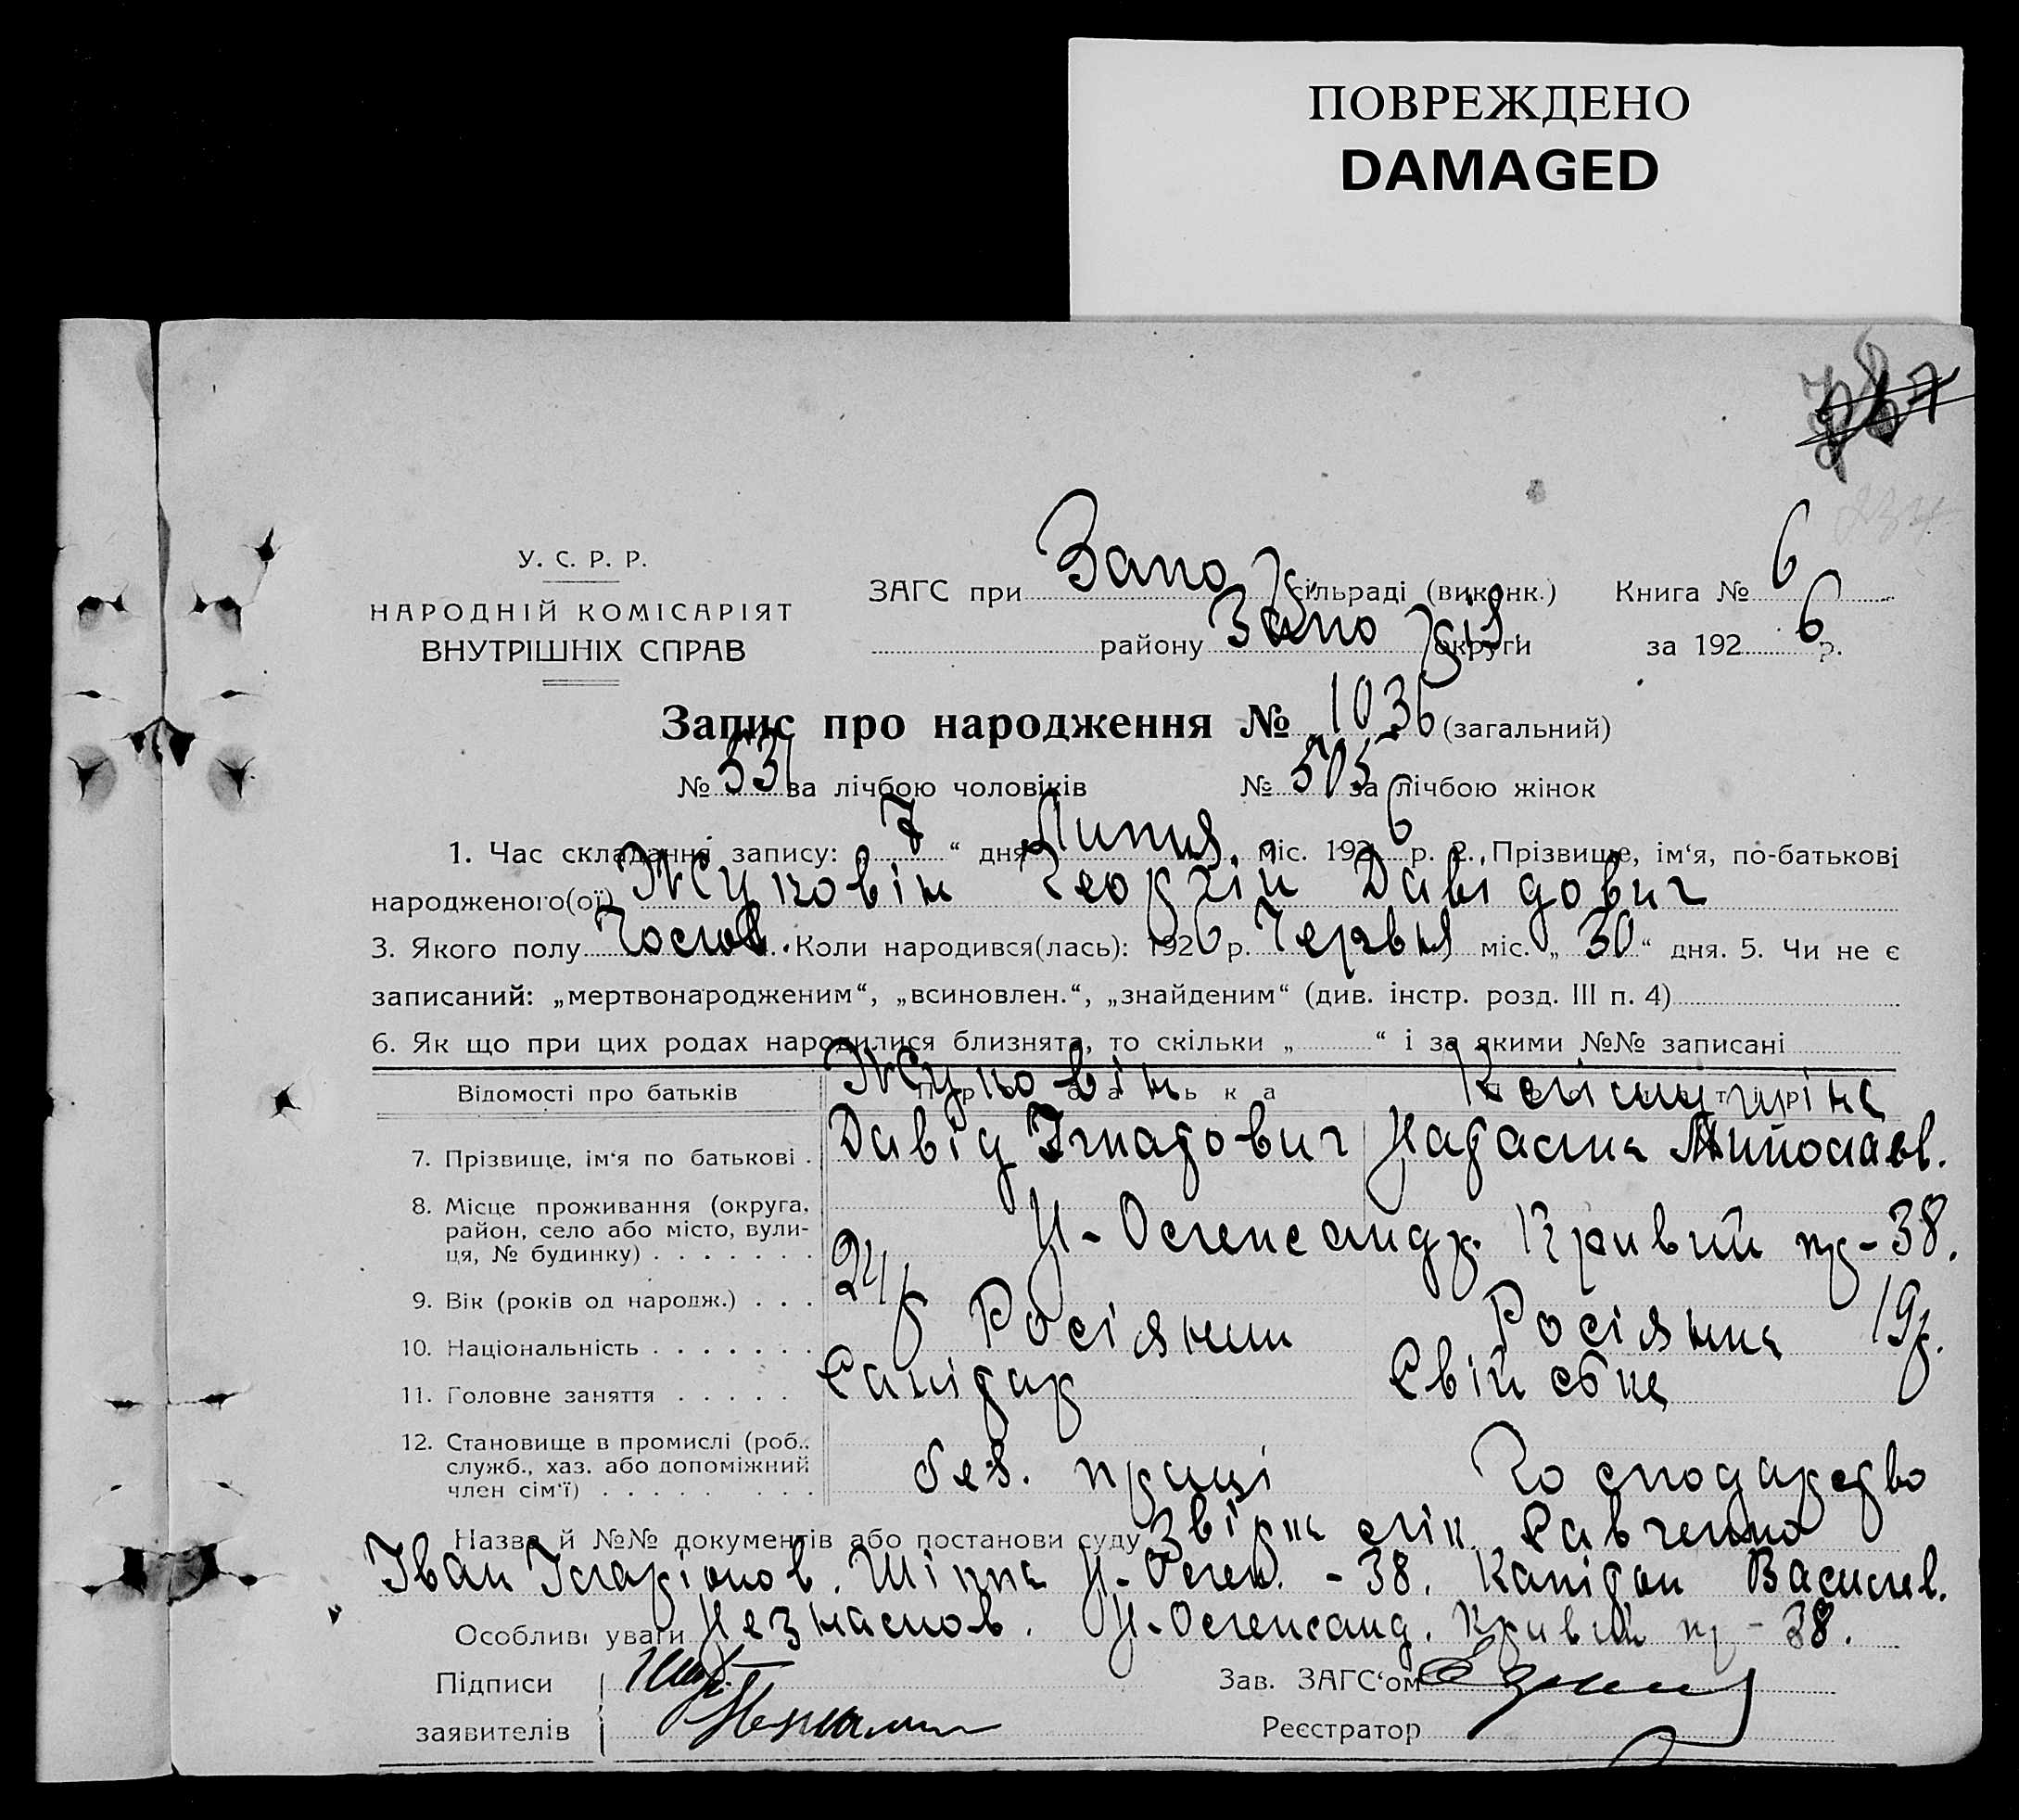 ПОВРЕЖДЕНО
DAMAGED
У. С. Р. Р.
НАРОДНІЙ КОМІСАРІЯТ
ВНУТРІШНІХ СПРАВ
ЗАГС при Запо сільраді (виконк.) Книга № 6
району Запо округи за 1926 р.
Запис про народження № 1036 (загальний)
№ 531 за лічбою чоловіків № 505 за лічбою жінок
1. Час складання запису: „7“ дня Липня міс. 1926 р. 2. Прізвище, ім‘я, по-батькові
народженого(ої) Жуковін Георгій Давідович
3. Якого полу Чолов. Коли народився(лась): 1926 р. Червня міс. „30“ дня. 5. Чи не є
записаний: „мертвонародженим“, „всиновлен.“, „знайденим“ (див. інстр. розд. III п. 4)
6. Як що при цих родах народилися близнята, то скільки „ “ і за якими №№ записані
Відомості про батьків Жуковін
7. Прізвище, ім‘я по батькові . Давід Ігнатович Наталина Миколаєв.
8. Місце проживання (округа, район, село або місто, вулиця, № будинку) Н-Олександр. Кривий пр-38.
9. Вік (років од народж.) . . . 24 р 19 р.
10. Національність Росіянин Росіянка
11. Головне заняття Санітар Свійське
12. Становище в промислі (роб., служб., хаз. або допоміжний член сім‘ї) без. праці Господарство
Назва й №№ документів або постанови суду Звірка лік. Савченко
Іван Іларіонов. Н-Олек. - 38. Капітон Василев.
Особливі уваги Незнамов. Н-Олександ. Кривий пр - 38.
Підписи
заявителів
Зав. ЗАГС‘ом
Реєстратор